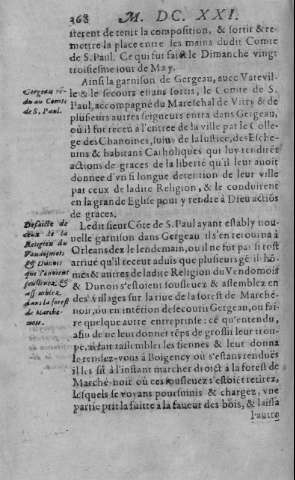 368 M. DC. XXI.
sterent de tenir la composition, & sortir & re-
mettre la place entre les mains dudit Comte
de S. Paul. Ce qui fut fait le Dimanche vingt
troisiesme iour de May.
Gergeau ré-
du au Comte
de S. Paul.
Ainsi la garnison de Gergeau, auec Vatevil-
le & le secours estans sortis, le Comte de S.
Paul, accompagné du Mareschal de Vitry & de
plusieurs autres seigneurs entra dans Gergeau,
où il fut receu à l'entree de la ville par le Colle-
ge des Chanoines, suiuy de la Iustice, des Esche-
uins & habitans Catholiques qui luy rendirét
actiós de graces de la liberté qu'il leur auoit
donnee d'vn si longue detention de leur ville
par ceux de ladite Religion, & le conduirent
en la grande Eglise pour y rendre à Dieu actiós
de graces.
Desfaicte de
ceux de la
Religion du
Vandosmois
& Dunois
que s'estoient
sousleuez, &
assemblez
dans la forest
de Marche-
noir.
Ledit sieur Côte de S. Paul ayant estably nou-
uelle garnison dans Gergeau il s'en retourna à
Orleans dez le lendemain, ou il ne fut pas si tost
arriué qu'il receut aduis que plusieurs gétil hō-
mes & autres de ladite Religion du Vendomois
& Dunois s'estoient sousleuez & assemblez en
des villages sur la riue de la forest de Marche-
noir, ou en intétion de secourir Gergeau, ou fai-
re quelque autre entreprinse: ce qu'entendu,
afin de ne leur donner téps de grossir leur trou-
pe, aiant rassemblé les siennes & leur donna
le rendez-vous à Boigency où s'estans renduës
il les fit à l'instant marcher droict à la forest de
Marche-noir où ces sousleuez s'estoiét retirez,
lesquels se voyans poursuiuis & chargez, vne
partie prit la fuitte à la faueur des bois, & laissa
l'autre